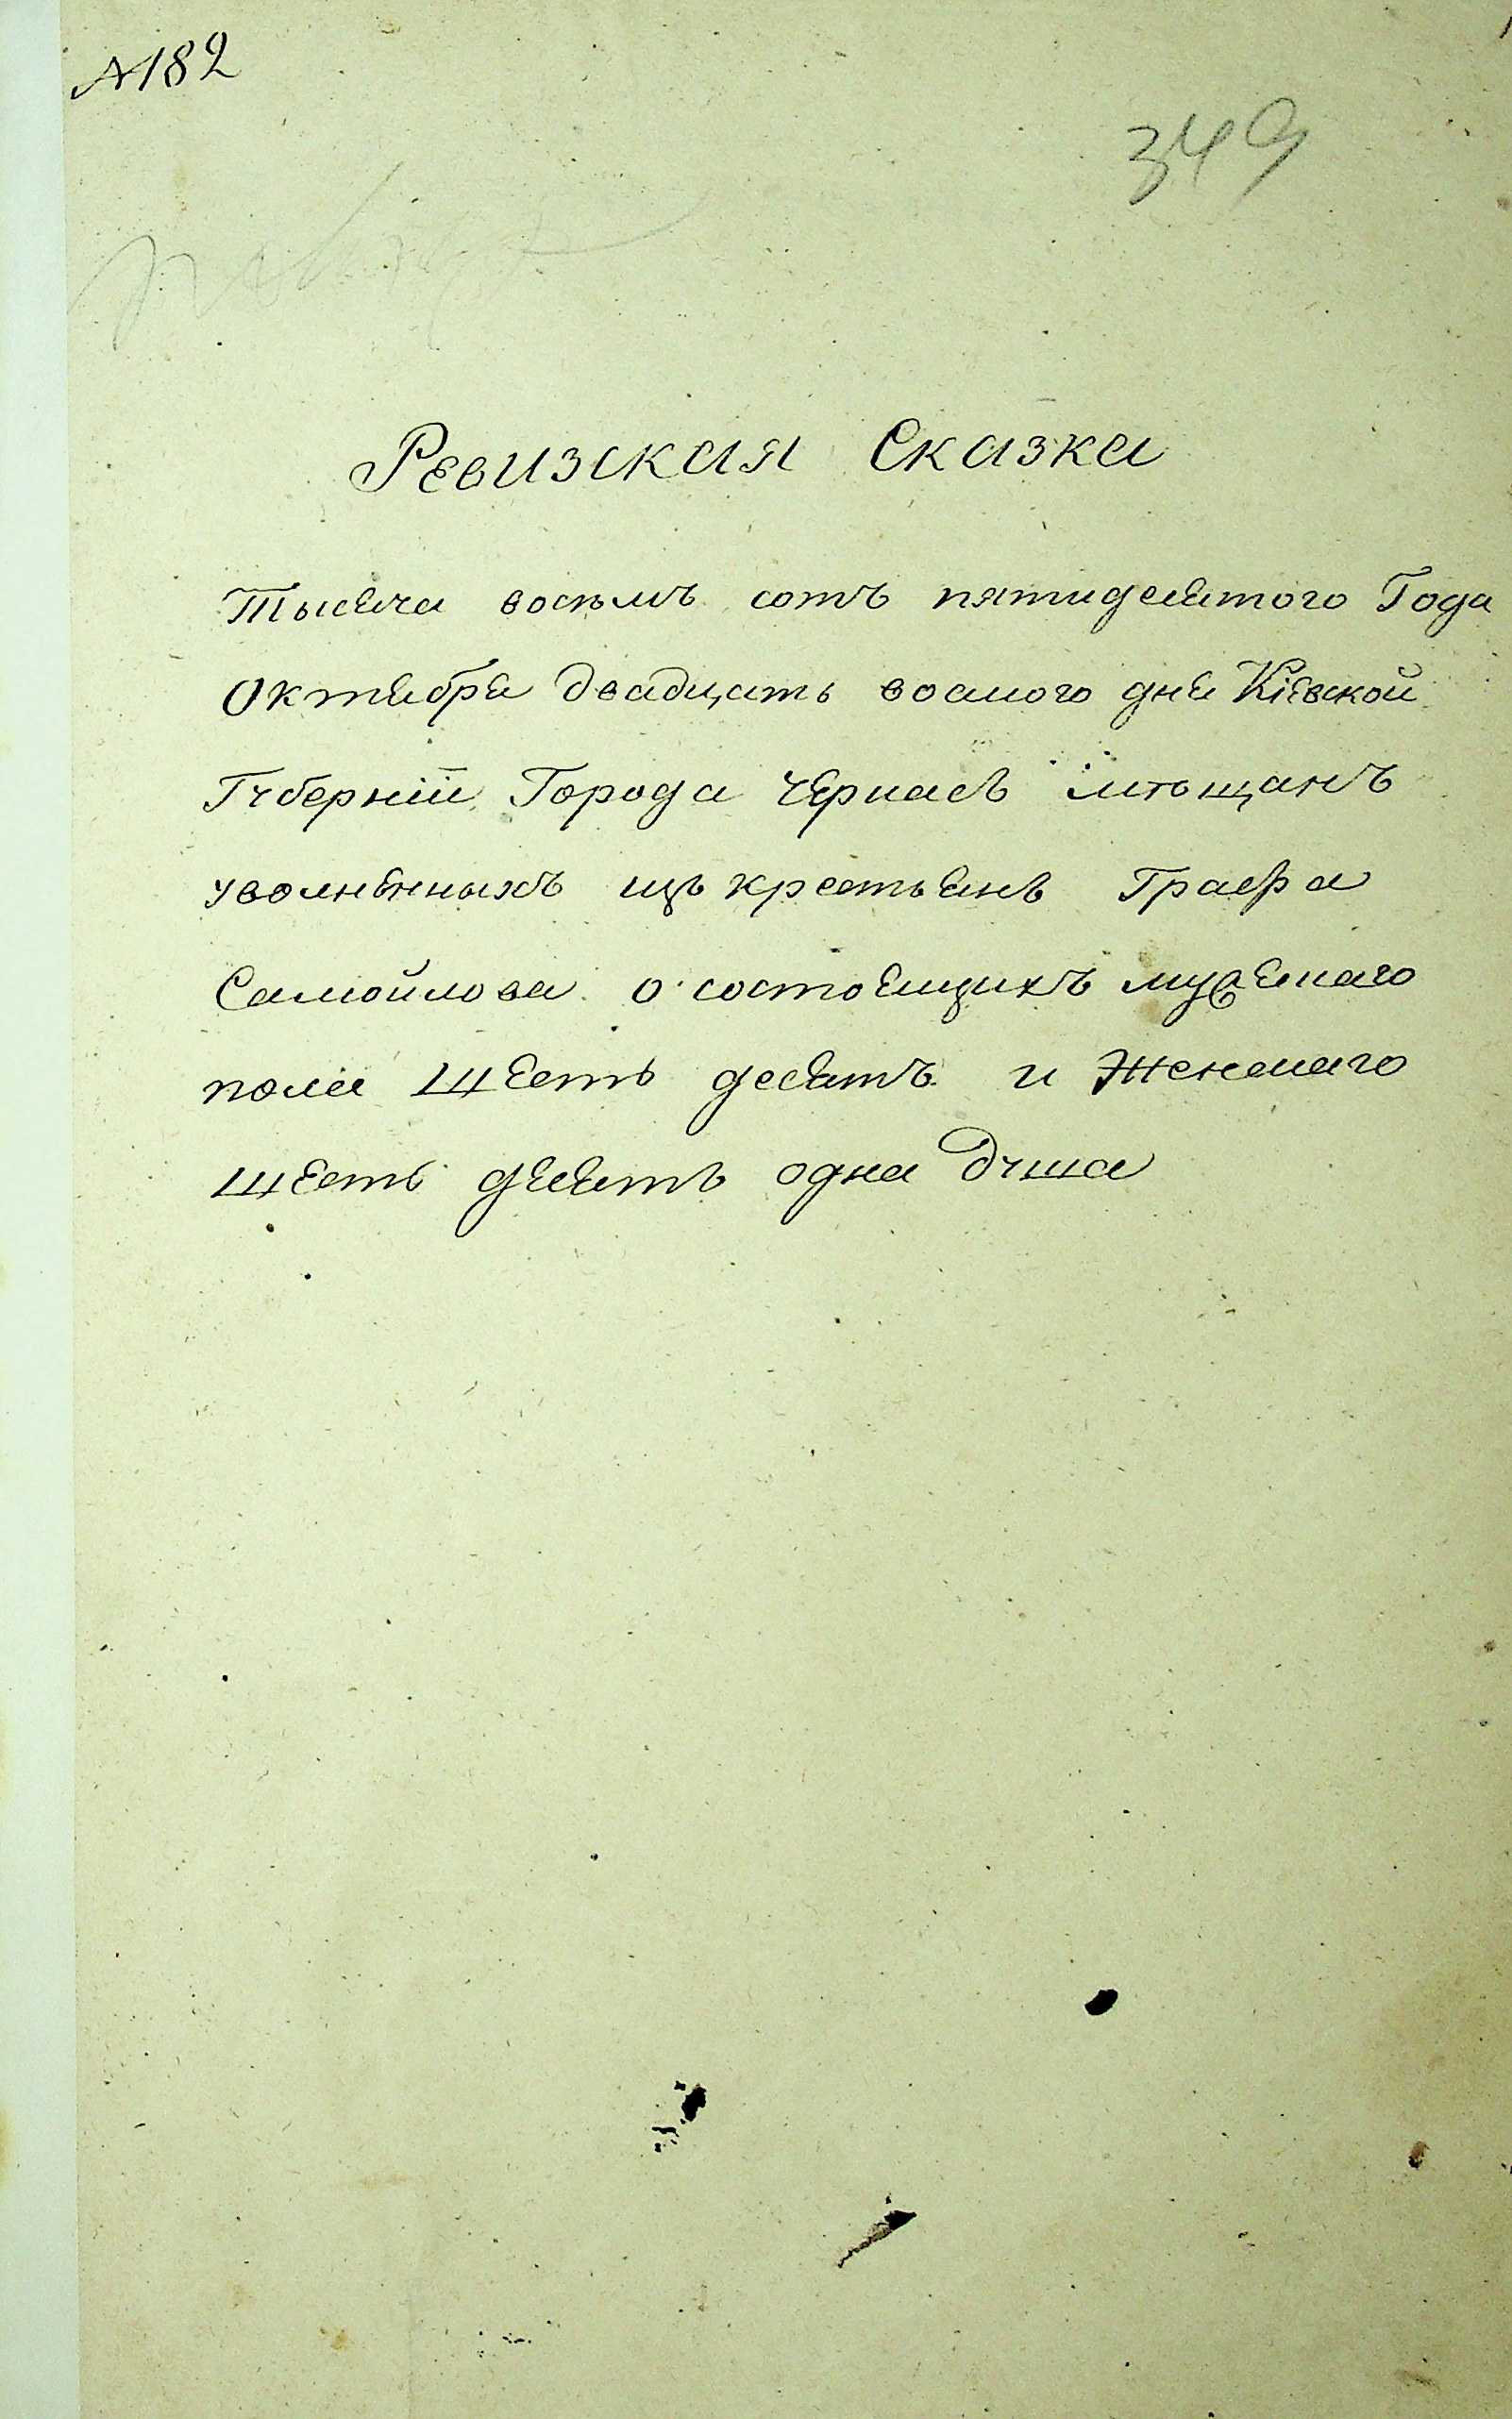 №182
349
Ревизская Сказка
Тысяча восемъ сотъ пятидесятого Года
Октября двадцать восмого дня Кіевской
Губерніи Города Черкасъ мѣщанъ
уволненныхъ изъ крестьянъ Графа
Самойлова о состоящихъ мужескаго
пола шесть десятъ и женскаго
шесть десятъ одна душа